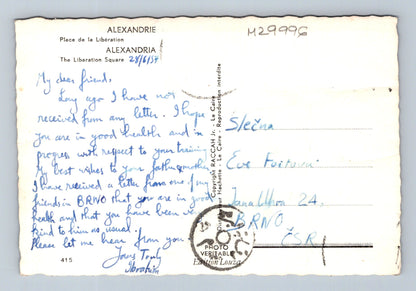 ALEXANDRIE
Place de la Libération
ALEXANDRIA
The Liberation Square 28/6/59
M2999G
My dear friend,
Long ago I have not
received from any letter. I hope
you are in good health and in
progress with respect to your training
My best wishes to your father, mother
I have received a letter from one of my
friends in BRNO that you are in good
health and that you have been ve
kind to him as usual.
Please let me hear from you
Yours Truly
Ibrahim
415
Copyright RACCAH Jr. - Le Caire
Hachette - Le Caire - Reproduction interdite
PHOTO
VERITABLE
Edition Louza
Slečna
Eve
24,
BRNO
ČSR